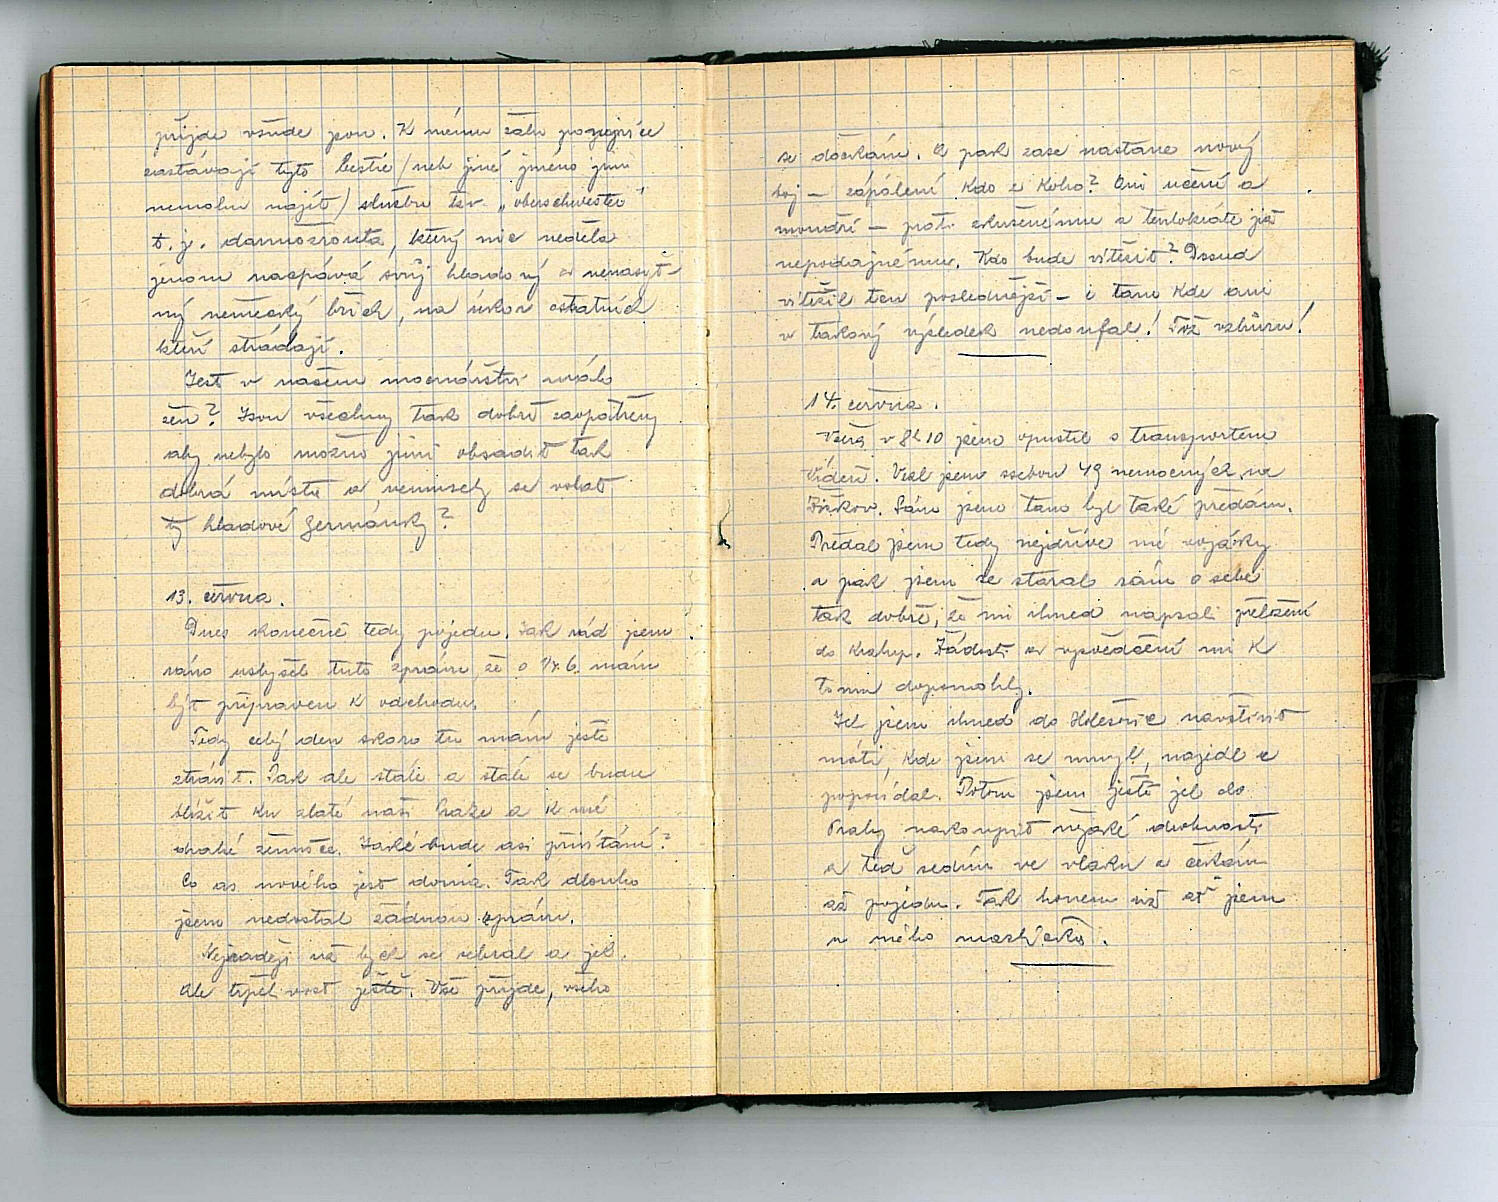 přijde všude jsou. K mému žalu pozejvíce
zastávají tyto bestie (neb jiné jméno jim
nemohu najít) službu tzv. „oberschwester"
t. j. darmožrouta, který nic nedělá
jenom nacpává svůj hladový a nenasyt-
ný německý břich, na úkor ostatních
kteří strádají.
Jest v našem mocnářství málo
žen? Jsou všechny tak dobře zaopatřeny
aby nebylo možno jimi obsadit tak
dobrá místa a nemusely se volat
ty hladové Germánky?
13. června.
Dnes konečně tedy pojedu. Jak rád jsem
ráno uslyšel tuto zprávu, že o ½ 6. mám
být připraven k odchodu.
Tedy celý den skoro tu mám ještě
ztrávit. Pak ale stále a stále se budu
blížit ku zlaté naší Praze a k mé
drahé ženušce. Jaké bude asi přivítání?
Co as nového jest doma. Tak dlouho
jsem nedostal žádnou zprávu.
Nejraději už bych se sebral a jel.
Ale trpělivost ještě. Vše přijde, všeho
se dočkám. A pak zase nastane nový
boj – zápolení kdo z koho? Oni učení a
moudří – proti zkušenému a tentokráte již
nepodajnému. Kdo bude vítězit? Dosud
vítězil ten poslednější – i tam kde ani
v takový výsledek nedoufal! Tož vzhůru!
14. června.
Včera v 8h 10 jsem opustil s transportem
Vídeň. Vezl jsem ssebou 49 nemocných na
Žižkov. Sám jsem tam byl také předán.
Předal jsem tedy nejdříve mé vojáky
a pak jsem se staral sám o sebe
tak dobře, že mi ihned napsali přeložení
do Kralup. Žádosti a vysvědčení mi k
tomu dopomohly.
Jel jsem ihned do Holešovic navštívit
máti, kde jsem se umyl, najedl a
popovídal. Potom jsem ještě jel do
Prahy nakoupit nějaké drobnosti
a teď sedím ve vlaku a čekám
až pojedu. Tak honem už ať jsem
u mého mazlíčka.